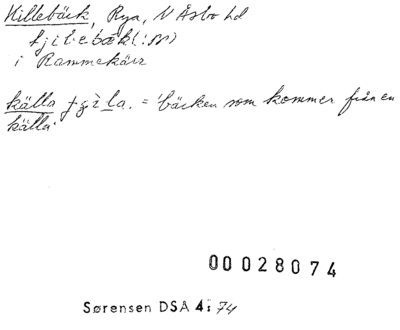 Killebäck, Rya, N Åsbo hd
i Rammekärr
källa = bäcken som kommer från en
källa.
00028074
Sørensen DSA 4: 74